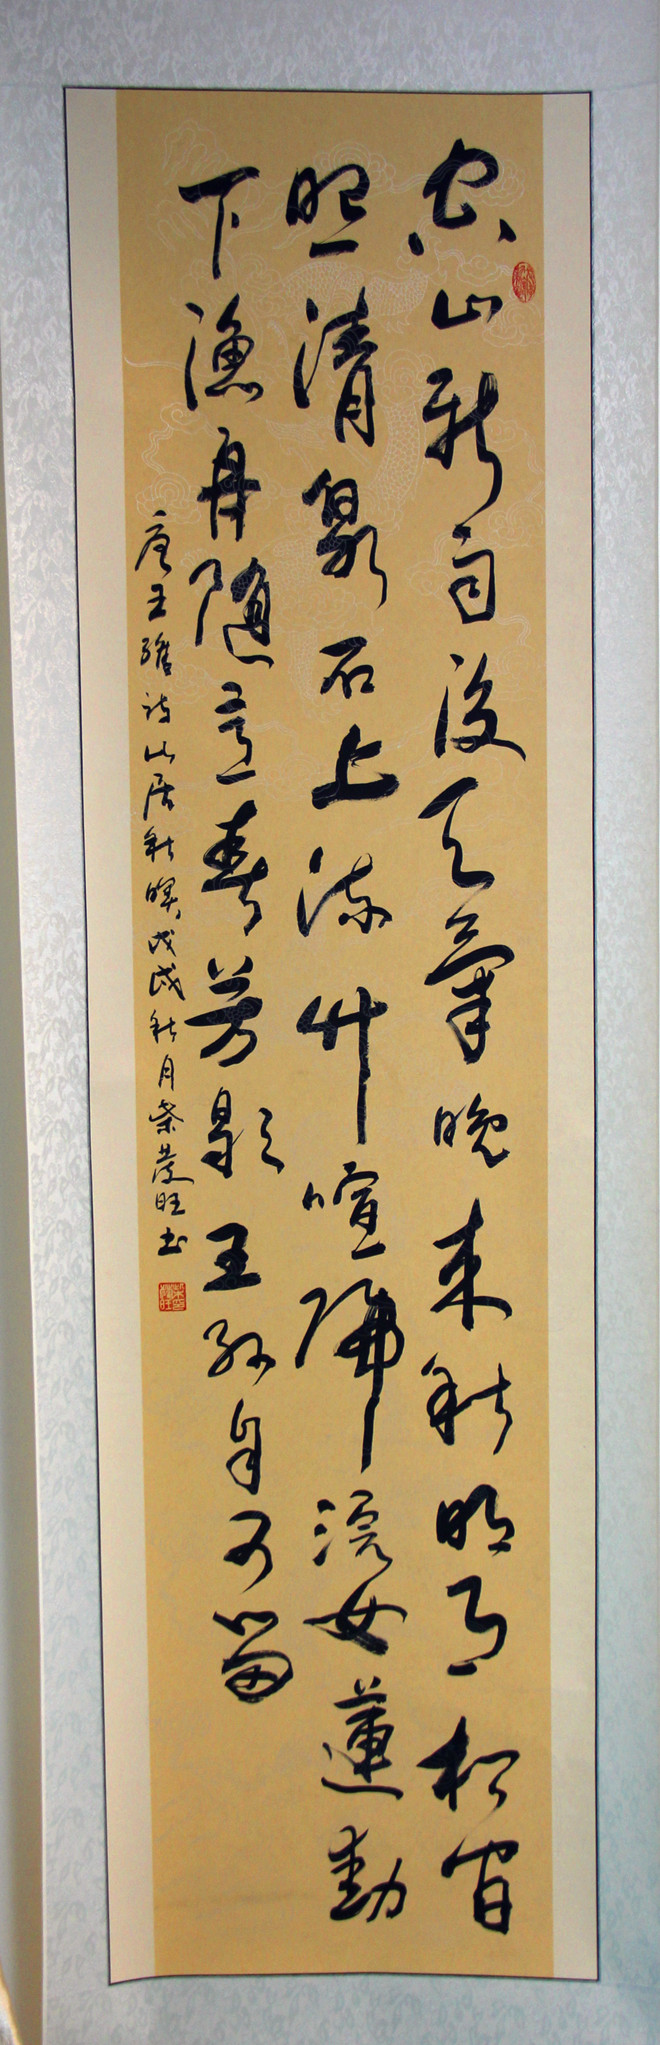 空山新雨後天氣晚来秋明月松間
照清泉石上流竹喧歸浣女蓮動
下漁舟隨意春芳歇王孫自可留
唐王維詩山居秋暝戊戌秋月旺书